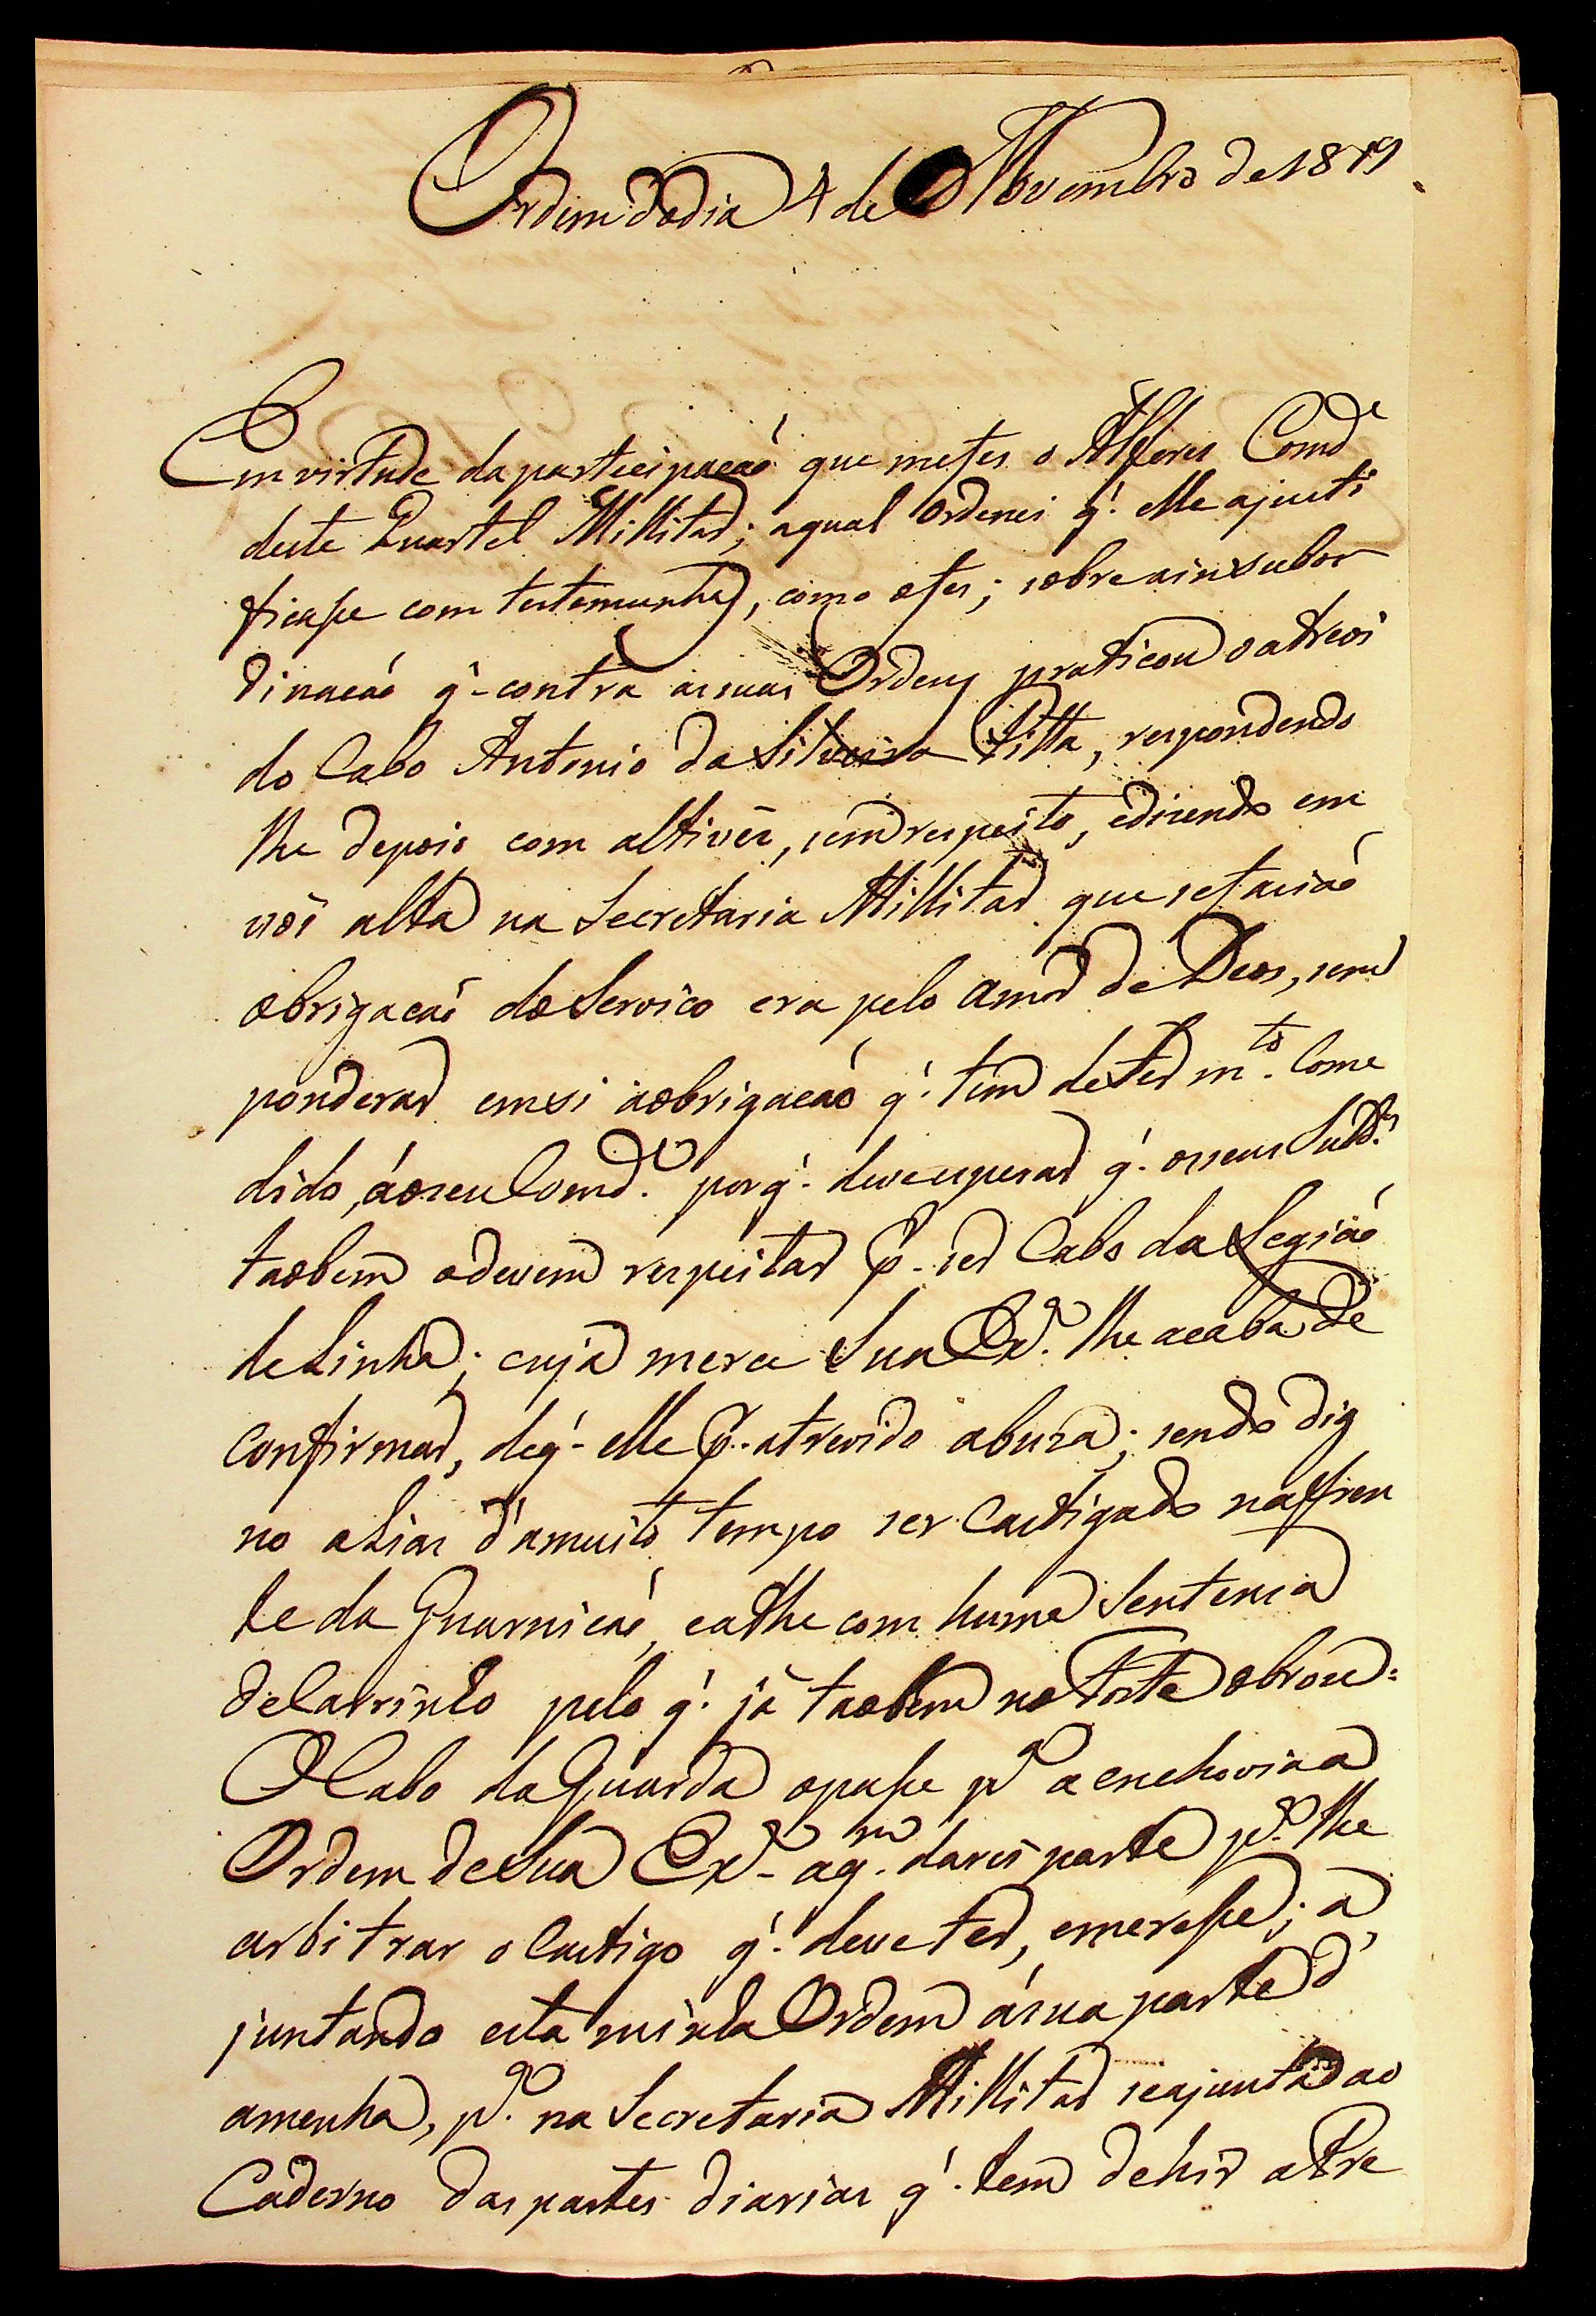 Ordem do dia 4 de Novembro de 1819
Em virtude da participacaõ que mefes o Alferes Comd.e
deste Quartel Millitar; aqual ordenei q'. elle ajusti
ficasse com testemunhas, como ofes; sobre ainsubor
dinacaõ q'. contra assuas Ordens praticou o atrevi
do Cabo Antonio da Silveira Pitta, respondendo
lhe depois com altivez, sem respeito, edizendo em
vos alta na Secretaria Millitar que sefaziaõ
obrigacaõ do Servico era pelo amor de Deos, sem
ponderar emsi aobrigacaõ q'. tem deser m.to Come
dido, áoseu Comd.e porq'. deve esperar q'. osseus Subd.os
taobem odevem respeitar p.r ser Cabo da Legiaõ
de Linha; cuja merce Sua Ex.a lhe acaba de
Confirmar, deq'. elle p.r atrevido abuza; sendo dig
no alias d'amuito tempo ser Castigado nafren
te da Guarnicaõ, eathe com huma Sentenca
de Carrinho pelo q'. já taobem no Forte obrou =
O Cabo da Guarda opasse p.a aenchovia a
Ordem de Sua Ex.a aq.m dareis parte p.a lhe
arbitrar o Castigo q'. deve ter, emeresse; a
juntando esta minha Ordem ásua parte d'
amenha, p.a na Secretaria Millitar seajuntar ao
Caderno das partes diarias q'. tem dehir aPre